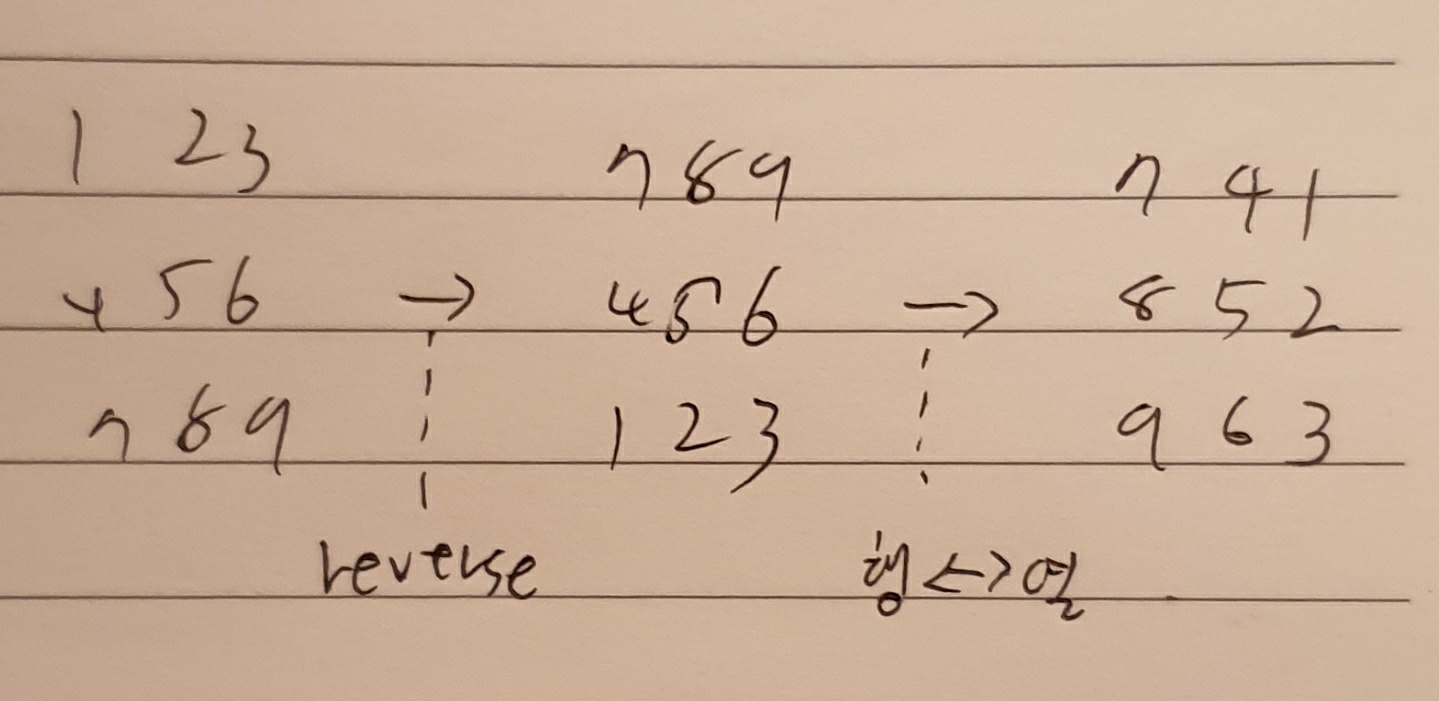 1 2 3
4 5 6
7 8 9
→
reverse
7 8 9
4 5 6
1 2 3
→
행<->열
7 4 1
8 5 2
9 6 3